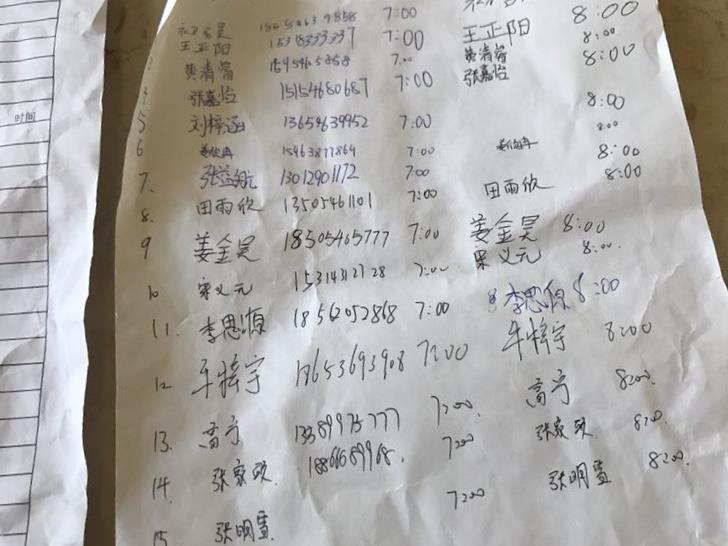 时间
7:00
王正阳 15318333337 7:00 王正阳 8:00
黄清睿 7:00 黄清睿 8:00
4 张嘉怡 15154680687 7:00 张嘉怡 8:00
5 刘梓涵 13654639952 7:00 8:00
6 15963877869 7:00 8:00
7. 张益航 13012901172 7:00 8:00
8. 田雨欣 13505461101 7:00 田雨欣 8:00
9 姜金昊 18505465777 7:00 姜金昊 8:00
10 宋义元 15314312728 7:00 宋义元 8:00.
11. 李思源 18562052868 7:00 李思源 8:00
12 牛梓宇 18653693908 7:00 牛梓宇 8:00
13. 高宁 13589975777 7:00. 高宁 8:00.
14. 张家硕 18866689968. 7:00 张家硕 8:00.
15 张明萱 7:00 张明萱 8:00.